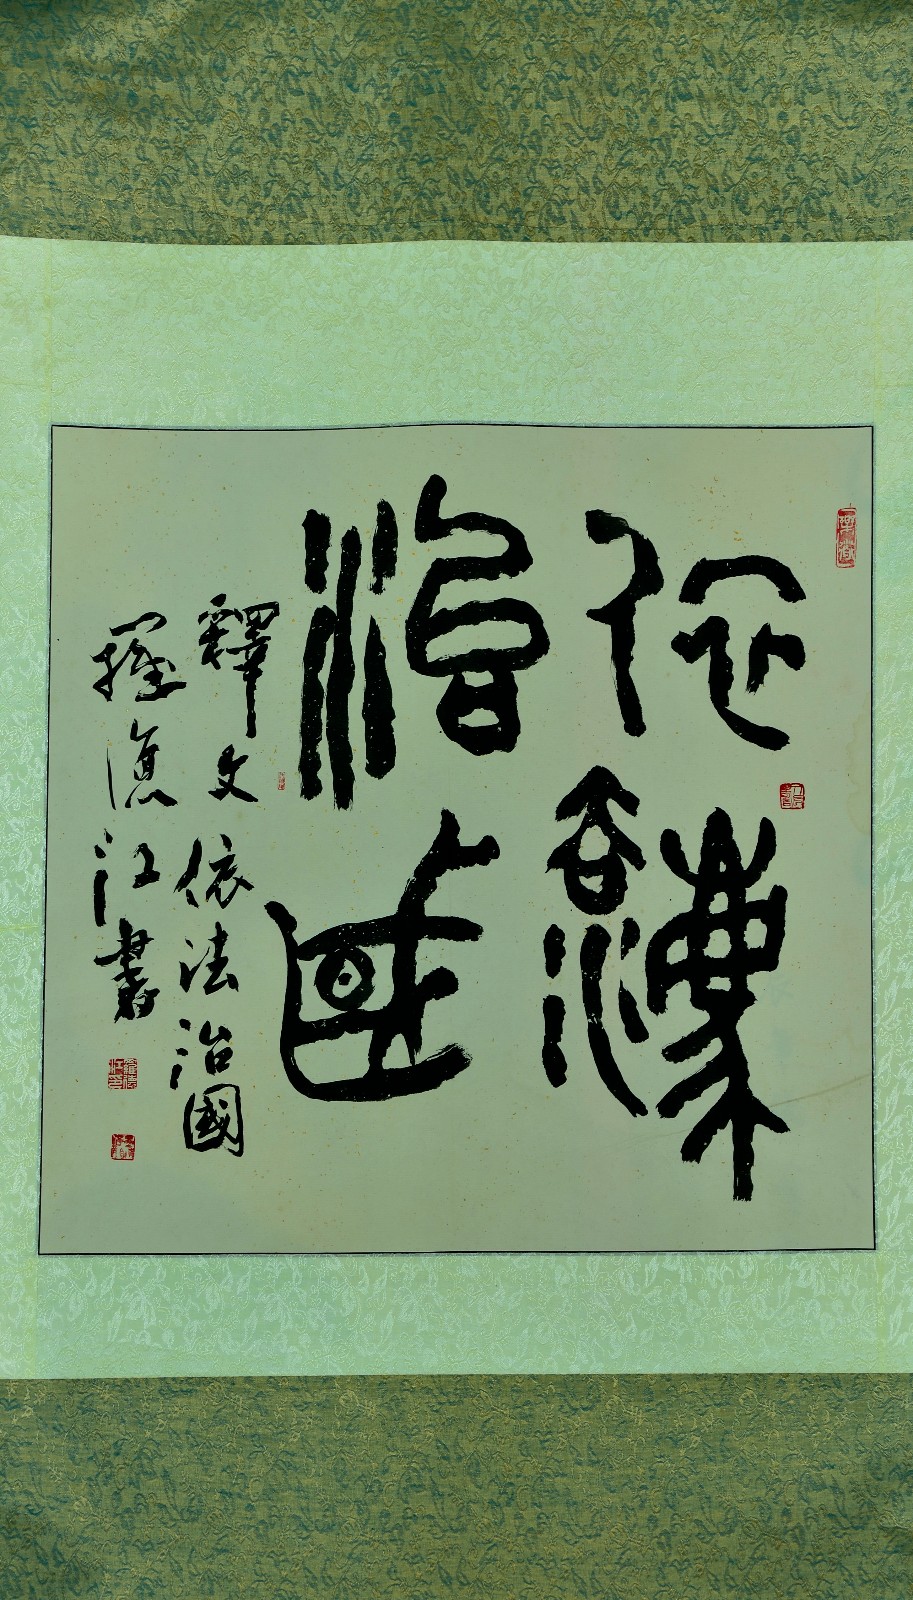 依灋
治國
釋文依法治國
羅憲江書